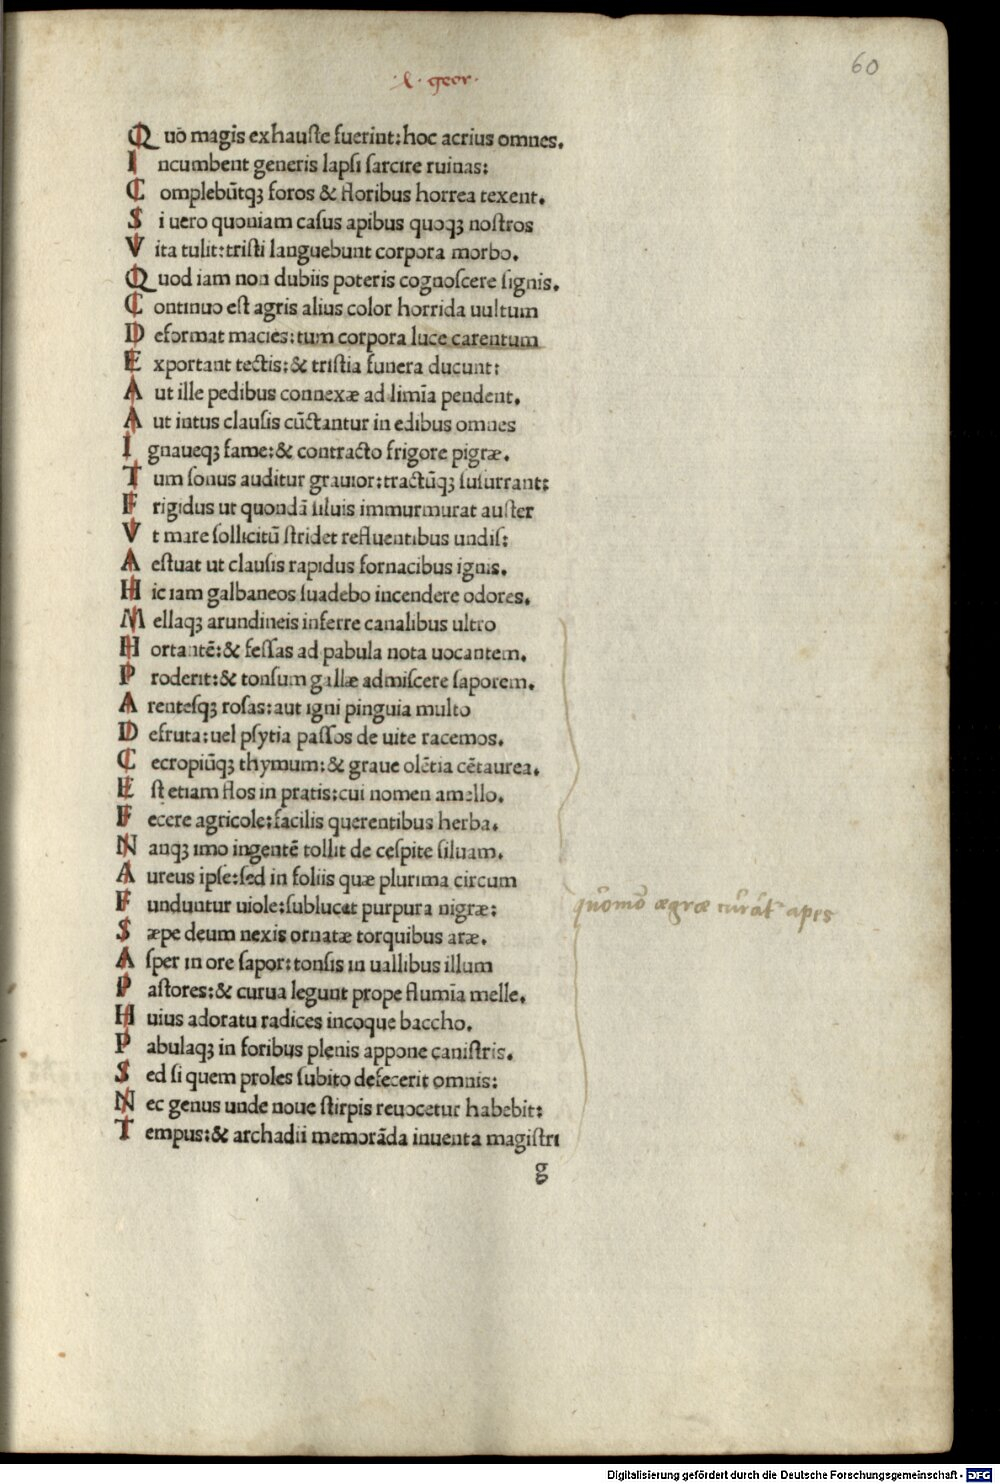 60
·l· geor·
Quō magis exhauſte fuerint: hoc acrius omnes.
Incumbent generis lapſi ſarcire ruinas:
Complebūtqꝫ foros & floribus horrea texent.
Si uero quoniam caſus apibus quoqꝫ noſtros
Vita tulit: triſti languebunt corpora morbo.
Quod iam non dubiis poteris cognoſcere ſignis.
Continuo eſt agris alius color horrida uultum
Deformat macies: tum corpora luce carentum
Exportant tectis: & triſtia funera ducunt:
Aut ille pedibus connexæ ad limīa pendent.
Aut intus clauſis cūctantur in edibus omnes
Ignaueqꝫ fame: & contracto frigore pigræ.
Tum ſonus auditur grauior: tractūqꝫ ſuſurrant:
Frigidus ut quondā ſiluis immurmurat auſter
Vt mare ſollicitū ſtridet refluentibus undiſ:
Aeſtuat ut clauſis rapidus fornacibus ignis.
Hic iam galbaneos ſuadebo incendere odores.
Mellaqꝫ arundineis inferre canalibus ultro
Hortantē: & feſſas ad pabula nota uocantem.
Proderit: & tonſum gallæ admiſcere ſaporem.
Arenteſqꝫ roſas: aut igni pinguia multo
Defruta: uel pſytia paſſos de uite racemos.
Cecropiūqꝫ thymum: & graue olētia cētaurea.
Eſt etiam flos in pratis: cui nomen amello.
Fecere agricole: facilis querentibus herba.
Nanqꝫ imo ingentē tollit de ceſpite ſiluam.
Aureus ipſe: ſed in foliis quæ plurima circum
Funduntur uiole: ſublucet purpura nigræ:
Sæpe deum nexis ornatæ torquibus aræ.
Aſper in ore ſapor: tonſis in uallibus illum
Paſtores: & curua legunt prope flumīa melle.
Huius adoratu radices incoque baccho.
Pabulaqꝫ in foribus plenis appone caniſtris.
Sed ſi quem proles ſubito defecerit omnis:
Nec genus unde noue ſtirpis reuocetur habebit:
Tempus: & archadii memorāda inuenta magiſtri
g
quōmō ægræ curāt apes
Digitalisierung gefördert durch die Deutsche Forschungsgemeinschaft - DFG